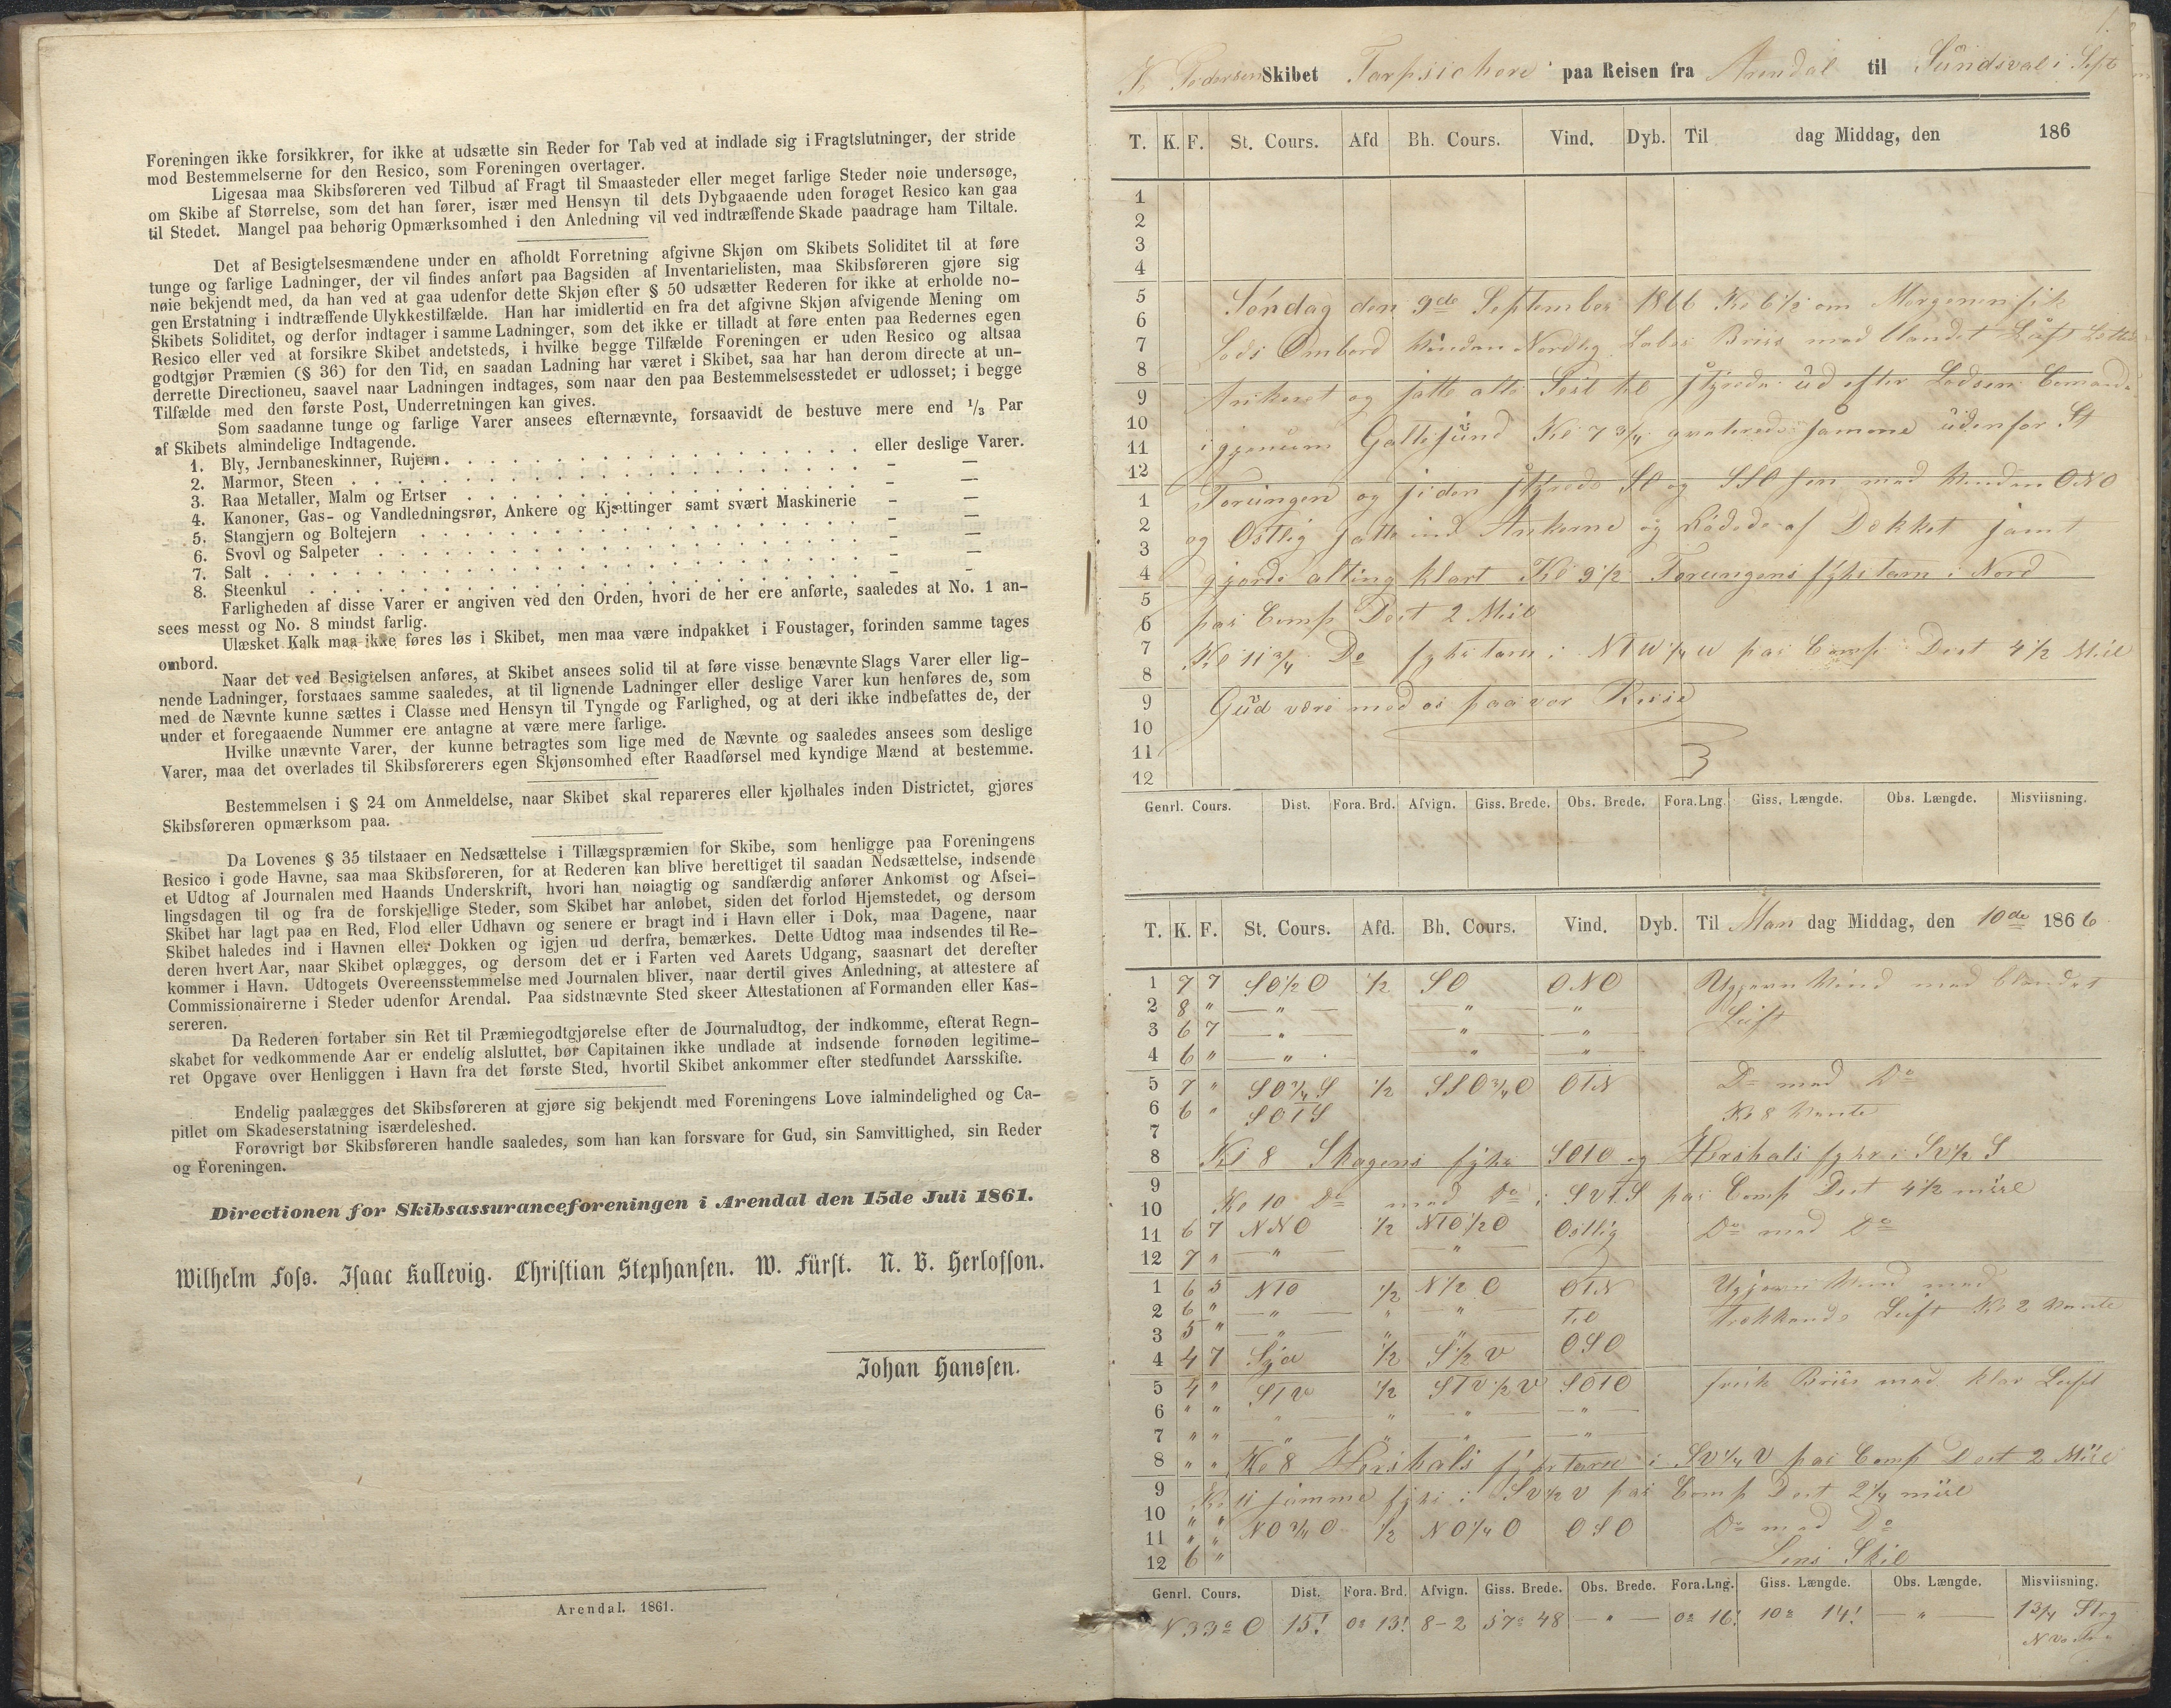 Foreningen ikke forsikkrer, for ikke at udsætte sin Reder for Tab ved at indlade sig i Fragtslutninger, der stride
mod Bestemmelserne for den Resico, som Foreningen overtager.
Ligesaa maa Skibsføreren ved Tilbud af Fragt til Smaasteder eller meget farlige Steder nøie undersøge,
om Skibe af Størrelse, som det han fører, især med Hensyn til dets Dybgaaende uden forøget Resico kan gaa
til Stedet. Mangel paa behørig Opmærksomhed i den Anledning vil ved indtræffende Skade paadrage ham Tiltale.
Det af Besigtelsesmændene under en afholdt Forretning afgivne Skjøn om Skibets Soliditet til at føre
tunge og farlige Ladninger, der vil findes anført paa Bagsiden af Inventarielisten, maa Skibsføreren gjøre sig
nøie bekjendt med, da han ved at gaa udenfor dette Skjøn efter § 50 udsætter Rederen for ikke at erholde no-
gen Erstatning i indtræffende Ulykkestilfælde. Han har imidlertid en fra det afgivne Skjøn afvigende Mening om
Skibets Soliditet, og derfor indtager i samme Ladninger, som det ikke er tilladt at føre enten paa Redernes egen
Resico eller ved at forsikre Skibet andetsteds, i hvilke begge Tilfælde Foreningen er uden Resico og altsaa
godtgjør Præmien (§ 36) for den Tid, en saadan Ladning har været i Skibet, saa har han derom directe at un-
derrette Directionen, saavel naar Ladningen indtages, som naar den paa Bestemmelsesstedet er udlosset; i begge
Tilfælde med den første Post, Underretningen kan gives.
Som saadanne tunge og farlige Varer ansees efternævnte, forsaavidt de bestuve mere end 1/3 Par
af Skibets almindelige Indtagende.
1. Bly, Jernbaneskinner, Rujern . . . eller deslige Varer.
2. Marmor, Steen . . . - —
3. Raa Metaller, Malm og Ertser . . . - —
4. Kanoner, Gas- og Vandledningsrør, Ankere og Kjættinger samt svært Maskinerie - —
5. Stangjern og Boltejern . . . - —
6. Svovl og Salpeter . . . - —
7. Salt . . . - —
8. Steenkul . . . - -
Farligheden af disse Varer er angiven ved den Orden, hvori de her ere anførte, saaledes at No. 1 an-
sees messt og No. 8 mindst farlig.
Ulæsket Kalk maa ikke føres løs i Skibet, men maa være indpakket i Foustager, forinden samme tages
ombord.
Naar det ved Besigtelsen anføres, at Skibet ansees solid til at føre visse benævnte Slags Varer eller lig-
nende Ladninger, forstaaes samme saaledes, at til lignende Ladninger eller deslige Varer kun henføres de, som
med de Nævnte kunne sættes i Classe med Hensyn til Tyngde og Farlighed, og at deri ikke indbefattes de, der
under et foregaaende Nummer ere antagne at være mere farlige.
Hvilke unævnte Varer, der kunne betragtes som lige med de Nævnte og saaledes ansees som deslige
Varer, maa det overlades til Skibsførerers egen Skjønsomhed efter Raadførsel med kyndige Mænd at bestemme.
Bestemmelsen i § 24 om Anmeldelse, naar Skibet skal repareres eller kjølhales inden Districtet, gjøres
Skibsføreren opmærksom paa.
Da Lovenes § 35 tilstaaer en Nedsættelse i Tillægspræmien for Skibe, som henligge paa Foreningens
Resico i gode Havne, saa maa Skibsføreren, for at Rederen kan blive berettiget til saadan Nedsættelse, indsende
et Udtog af Journalen med Haands Underskrift, hvori han nøiagtig og sandfærdig anfører Ankomst og Afsei-
lingsdagen til og fra de forskjellige Steder, som Skibet har anløbet, siden det forlod Hjemstedet, og dersom
Skibet har lagt paa en Red, Flod eller Udhavn og senere er bragt ind i Havn eller i Dok, maa Dagene, naar
Skibet haledes ind i Havnen eller Dokken og igjen ud derfra, bemærkes. Dette Udtog maa indsendes til Re-
deren hvert Aar, naar Skibet oplægges, og dersom det er i Farten ved Aarets Udgang, saasnart det derefter
kommer i Havn. Udtogets Overeensstemmelse med Journalen bliver, naar dertil gives Anledning, at attestere af
Commissionairerne i Steder udenfor Arendal. Paa sidstnævnte Sted skeer Attestationen af Formanden eller Kas-
sereren.
Da Rederen fortaber sin Ret til Præmiegodtgjørelse efter de Journaludtog, der indkomme, efterat Regn-
skabet for vedkommende Aar er endelig alsluttet, bør Capitainen ikke undlade at indsende fornøden legitime-
ret Opgave over Henliggen i Havn fra det første Sted, hvortil Skibet ankommer efter stedfundet Aarsskifte.
Endelig paalægges det Skibsføreren at gjøre sig bekjendt med Foreningens Love ialmindelighed og Ca-
pitlet om Skadeserstatning isærdeleshed.
Forøvrigt bør Skibsføreren handle saaledes, som han kan forsvare for Gud, sin Samvittighed, sin Reder
og Foreningen.
Directionen for Skibsassuranceforeningen i Arendal den 15de Juli 1861.
Wilhelm Foss. Isaac Kallevig. Christian Stephansen. W. Fürst. N. B. Herlofson.
Johan Hanssen.
Arendal. 1861.
1.
K Pedersen Skibet Tarpsichore paa Reisen fra Arendal til Sundsval i Sept
T. K. F. St. Cours. Afd Bh. Cours. Vind. Dyb. Til dag Middag, den 186
1
2
3
4
5 Søndag den 9de September 1866 Kl 6 1/2 om Morgenen fik
6
7 Lods Ombord Vinden Nordlig Labor Briis med blandet Luft
8
9 Ankeret og satte alle Seil til styrede ud efter Lodsens Comando
10 igjenum Galtesund Kl 7 3/4 samme udenfor St
11
12
1 Torungen og siden styrede SO og SSO hen med Vinden ONO
2 og Ostlig satte ind Ankerne og af Dekket samt
3
4 gjorde alting klart Kl 9 1/2 Torungens fyhrtarn i Nord
5
6 paa Comp Dist 2 Mil
7 Kl 11 3/4 Do fyhrtarn i NTW 1/4 W paa Comp Dist 4 1/2 Mil
8
9 Gud være med os paa vor Reise
10
11
12
Genrl. Cours. Dist. Fora. Brd. Afvign. Giss. Brede. Obs. Brede. Fora. Lng. Giss. Længde. Obs. Længde. Misviisning.
T. K. F. St. Cours. Afd. Bh. Cours. Vind. Dyb. Til Man dag Middag, den 10de 1866
1 7 7 SO 1/2 O 1/2 SO ONO Ugjevn Vind med blandet
2 8 " — " — — " — — " — Luft
3 6 7 — " — — " — — " —
4 6 " — " — " "
5 7 " SO 3/4 S 1/2 SSO 3/4 O OTN Do med Do
6 6 " SOTS Kl 8 Vente
7
8 Kl 8 Skagens fyhr SOTO og Hirshals fyhr i SV 1/2 S
9
10 Kl 10 Do med Do i SVTS paa Comp Dist 4 1/2 miil
11 6 7 NNO 1/2 NTO 1/2 O Ostlig Do med Do
12 7 " — " — — " —
1 6 5 NTO 1/2 N 1/2 O OTN Ugjevn Vind med
2 6 " — " — " — " — Til Trækkende Luft Kl 2 Vente
3 5 " — " — " — " — OSO
4 4 7 1/2 S 1/2 V
5 4 " STV 1/2 STV 1/2 V SOTO frisk Briis med klar Luft
6 " " " — " — " — — " —
7 " " — " — " — " — — " —
8 " " Kl 8 Hirshals fyhrtarn i SV 1/4 V paa Comp Dist 2 Miil
9 Kl 11 samme fyhr i SV 1/2 V paa Comp Dist 2 1/4 miil
10 " " NO 3/4 O 1/2 NO 1/4 O OSO Do med Do
11 " "
12 6 " Lens Skib
Genrl. Cours. Dist. Fora. Brd. Afvign. Giss. Brede. Obs. Brede. Fora. Lng. Giss. Længde. Obs. Længde. Misviisning.
N 33° O 15! 0° 13! 8-2 57° 48 — " — 0° 16! 10° 14! — " — 1 3/4 Strg